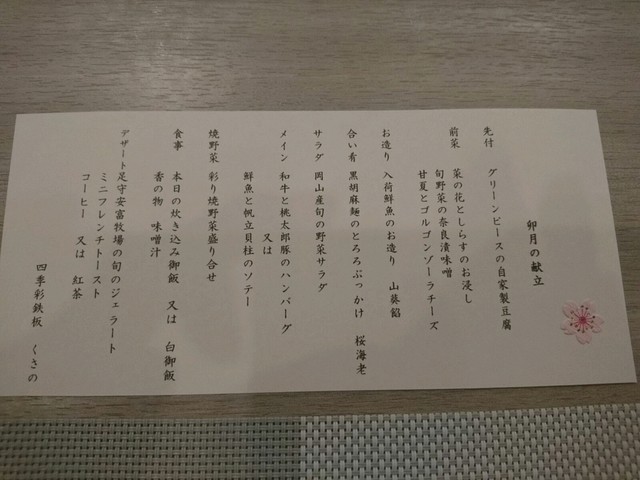 卯月の献立
先付 グリーンピースの自家製豆腐
前菜 菜の花としらすのお浸し
旬野菜の奈良漬味噌
甘夏とゴルゴンゾーラチーズ
お造り 入荷鮮魚のお造り 山葵餡
合い肴 黒胡麻麺のとろろぶっかけ 桜海老
サラダ 岡山産旬の野菜サラダ
メイン 和牛と桃太郎豚のハンバーグ
又は
鮮魚と帆立貝柱のソテー
焼野菜 彩り焼野菜盛り合せ
食事 本日の炊き込み御飯 又は 白御飯
香の物 味噌汁
デザート 足守安富牧場の旬のジェラート
ミニフレンチトースト
コーヒー 又は 紅茶
四季彩鉄板 くさの